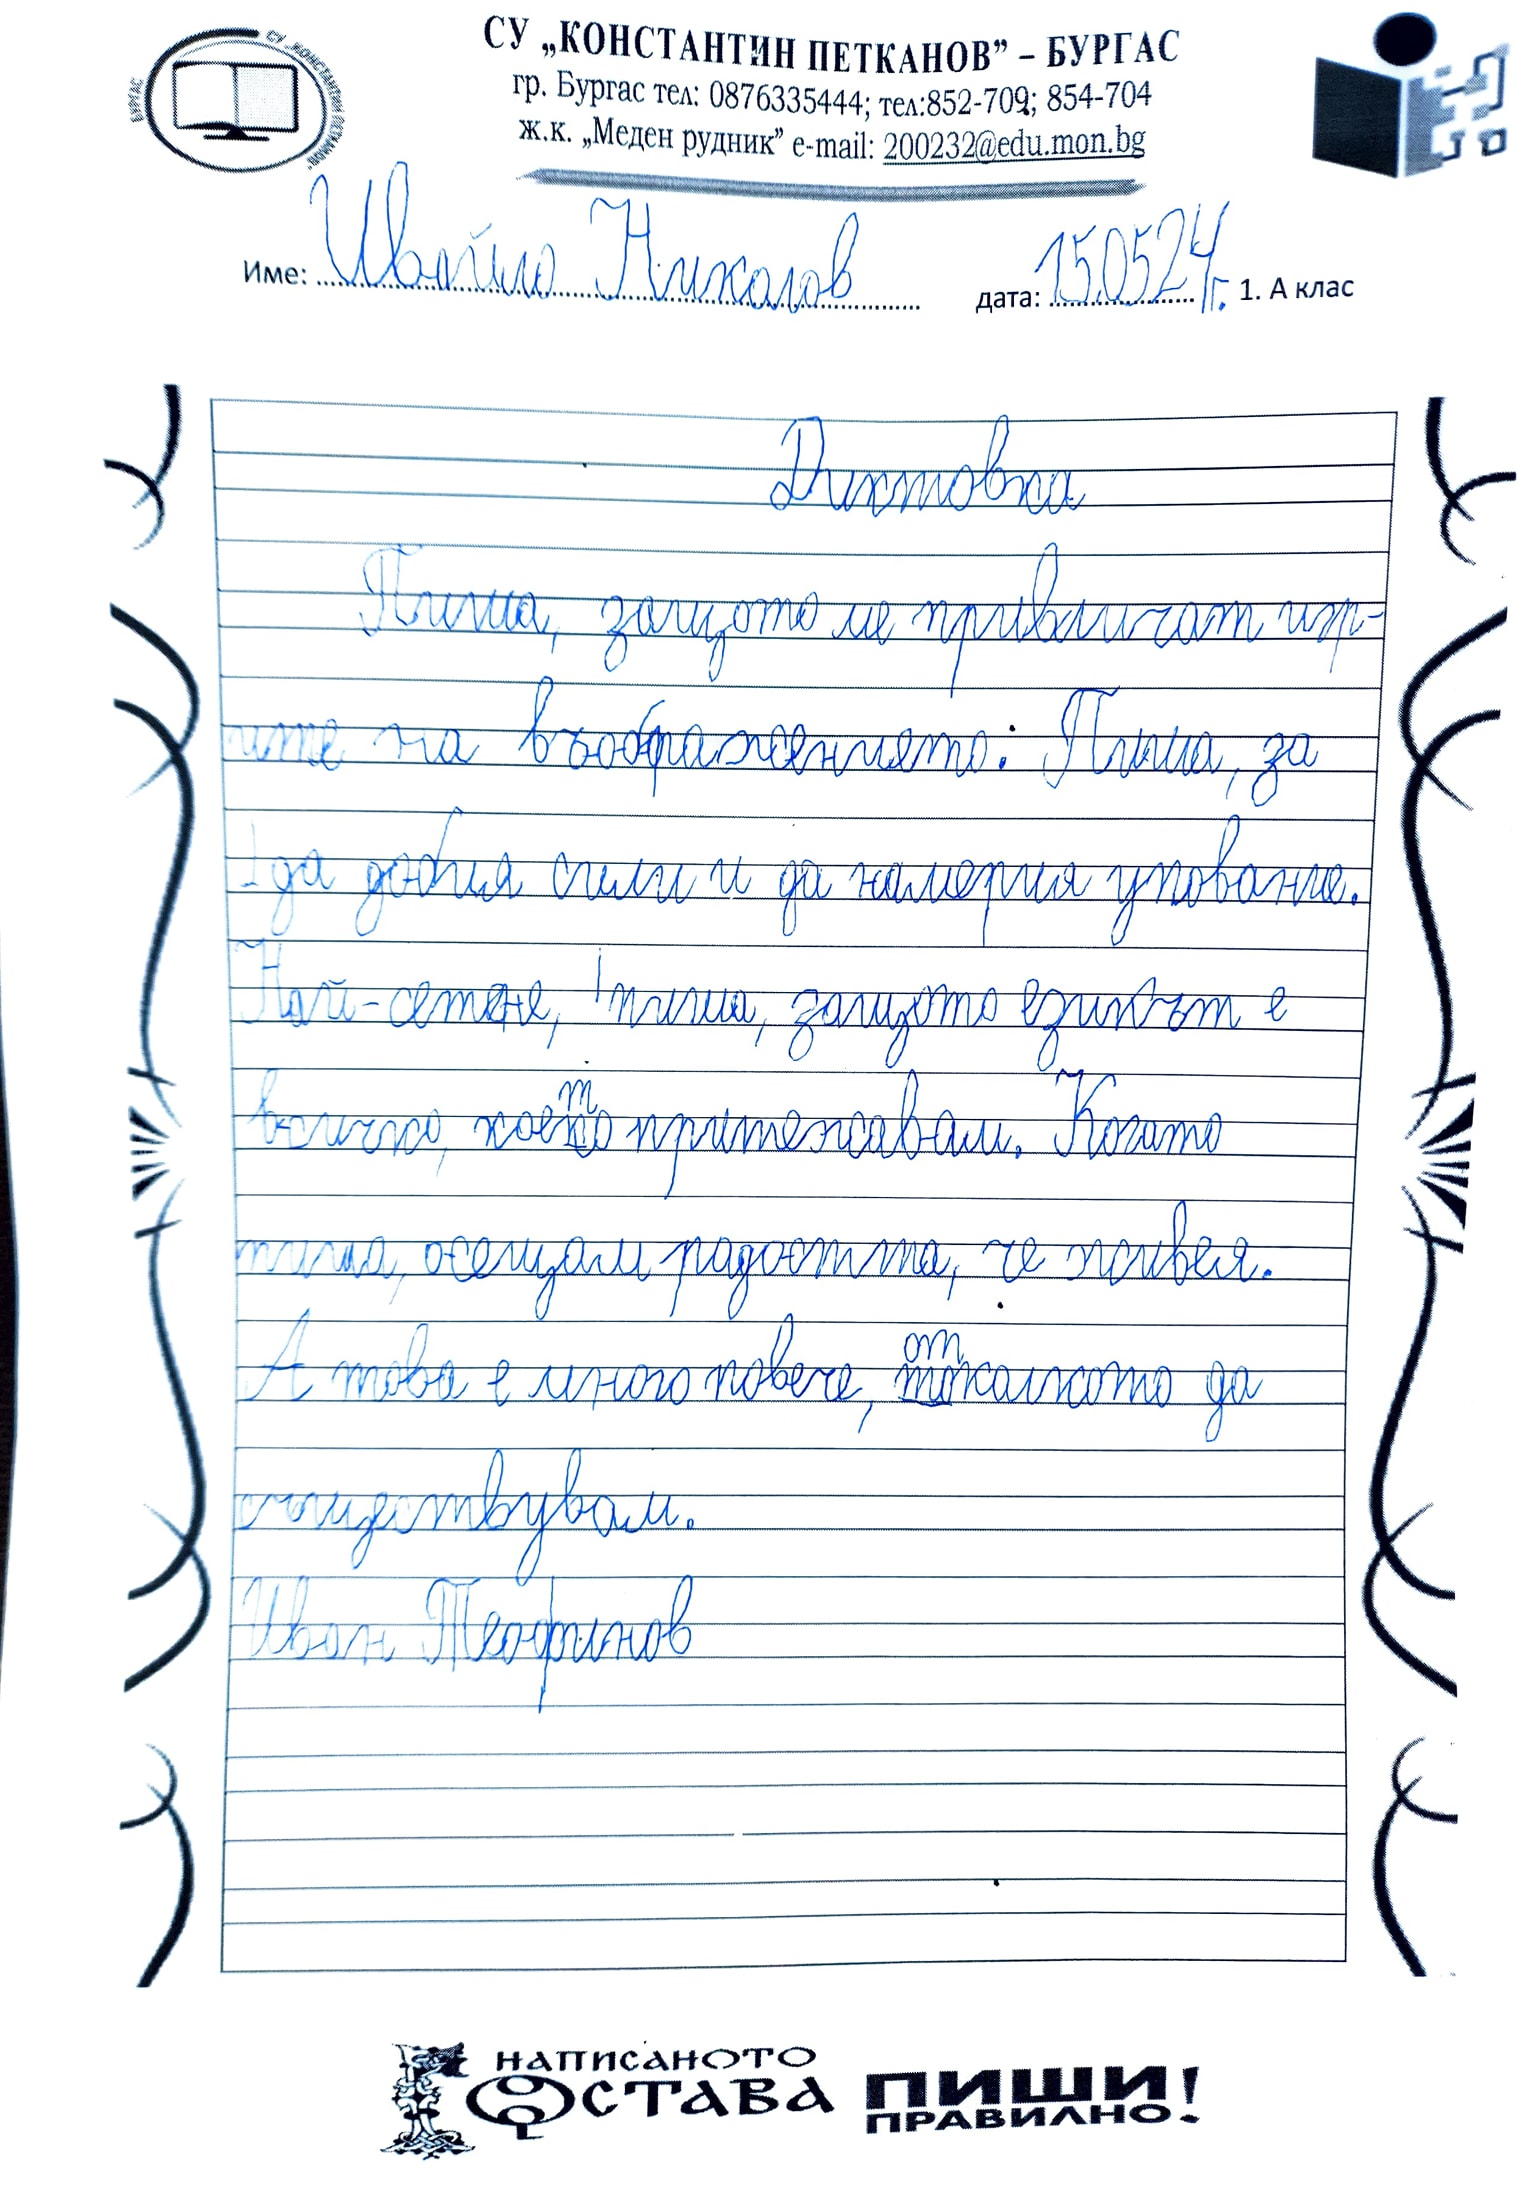 СУ „КОНСТАНТИН ПЕТКАНОВ” – БУРГАС
гр. Бургас тел: 0876335444; тел:852-709; 854-704
ж.к. „Меден рудник” e-mail: 200232@edu.mon.bg
СУ „КОНСТАНТИН ПЕТКАНОВ”
БУРГАС
Име: Ивайло Николов дата: 15.05.24 г. 1. А клас
Диктовка
Пиша, защото ме привличат игр-
ите на въображението. Пиша, за
да добия сили и да намеря упование.
Най-сетне, пиша, защото езикът е
всичко, което притежавам. Когато
пиша, осещам радостта, че живея.
А това е много повече, от
колкото да
съществувам.
Иван Теофилов
НАПИСАНОТО
ОСТАВА ПИШИ
ПРАВИЛНО!